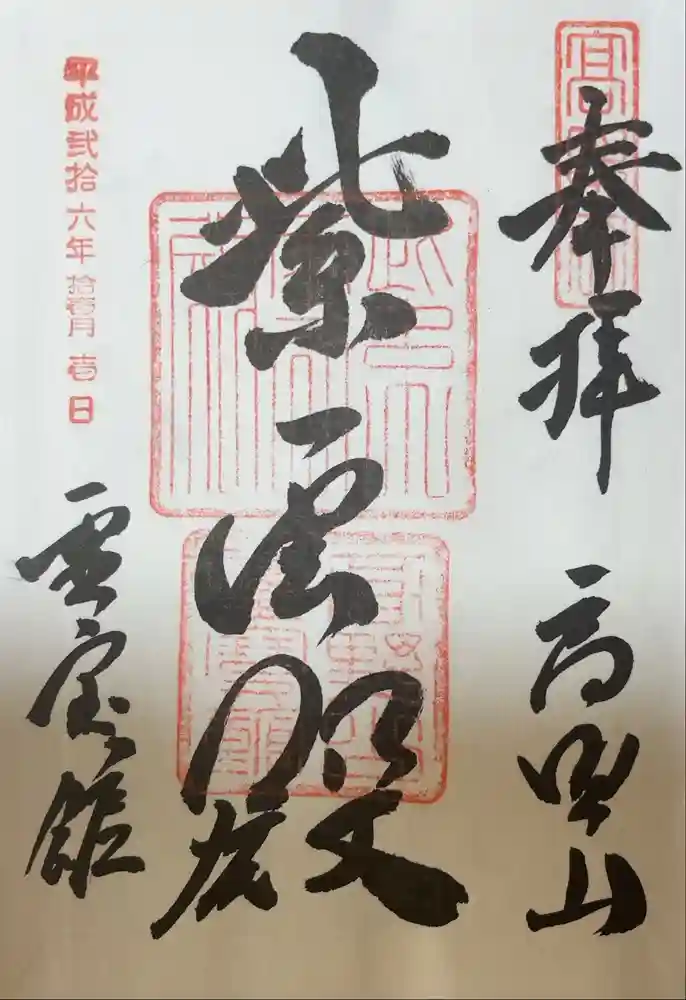 奉拝 高野山
紫雲殿
霊宝館
平成弐拾六年拾壱月壱日